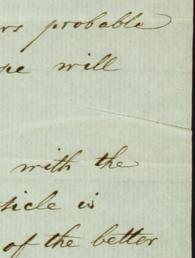 probable
will
with the
is
of the better